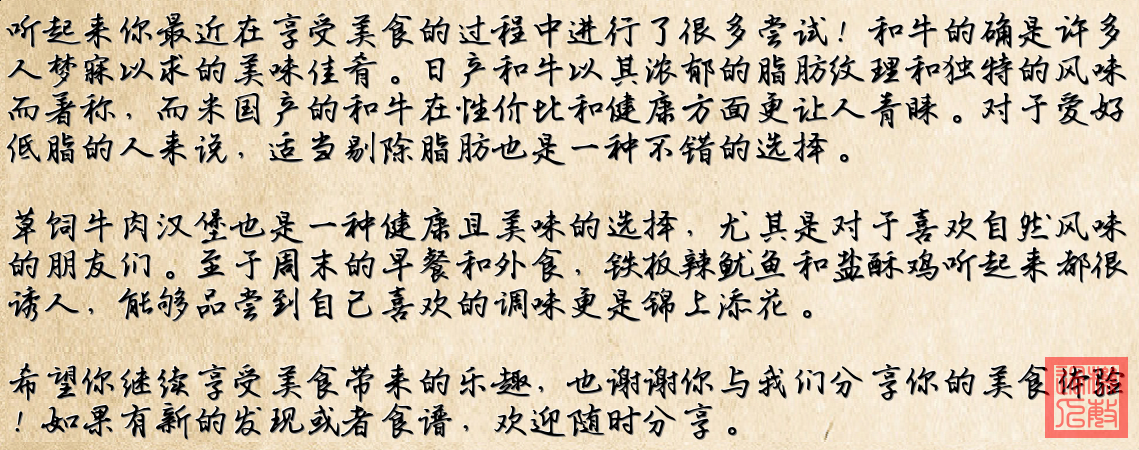 听起来你最近在享受美食的过程中进行了很多尝试！和牛的确是许多
人梦寐以求的美味佳肴。日产和牛以其浓郁的脂肪纹理和独特的风味
而著称，而米国产的和牛在性价比和健康方面更让人青睐。对于爱好
低脂的人来说，适当剔除脂肪也是一种不错的选择。
草饲牛肉汉堡也是一种健康且美味的选择，尤其是对于喜欢自然风味
的朋友们。至于周末的早餐和外食，铁扳辣鱿鱼和盐酥鸡听起来都很
诱人，能够品尝到自己喜欢的调味更是锦上添花。
希望你继续享受美食带来的乐趣，也谢谢你与我们分享你的美食体验
！如果有新的发现或者食谱，欢迎随时分享。